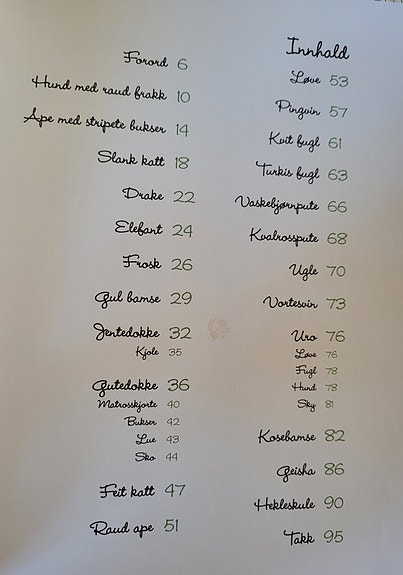 Innhald
Forord 6
Hund med raud frakk 10
Ape med stripete bukser 14
Slank katt 18
Drake 22
Elefant 24
Frosk 26
Gul bamse 29
Jentedokke 32
Kjole 35
Gutedokke 36
Matrosskjorte 40
Bukser 42
Lue 43
Sko 44
Feit katt 47
Raud ape 51
Løve 53
Pingvin 57
Kvit fugl 61
Turkis fugl 63
Vaskebjørnpute 66
Kvalrosspute 68
Ugle 70
Vortesvin 73
Uro 76
Løve 76
Fugl 78
Hund 78
Sky 81
Kosebamse 82
Geisha 86
Hekleskule 90
Takk 95